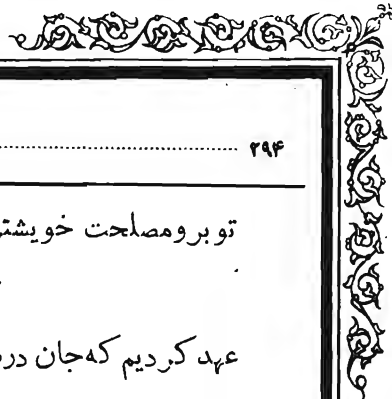 ۲۹۴
تو برو مصلحت خویشتن
عهد کردیم که جان در